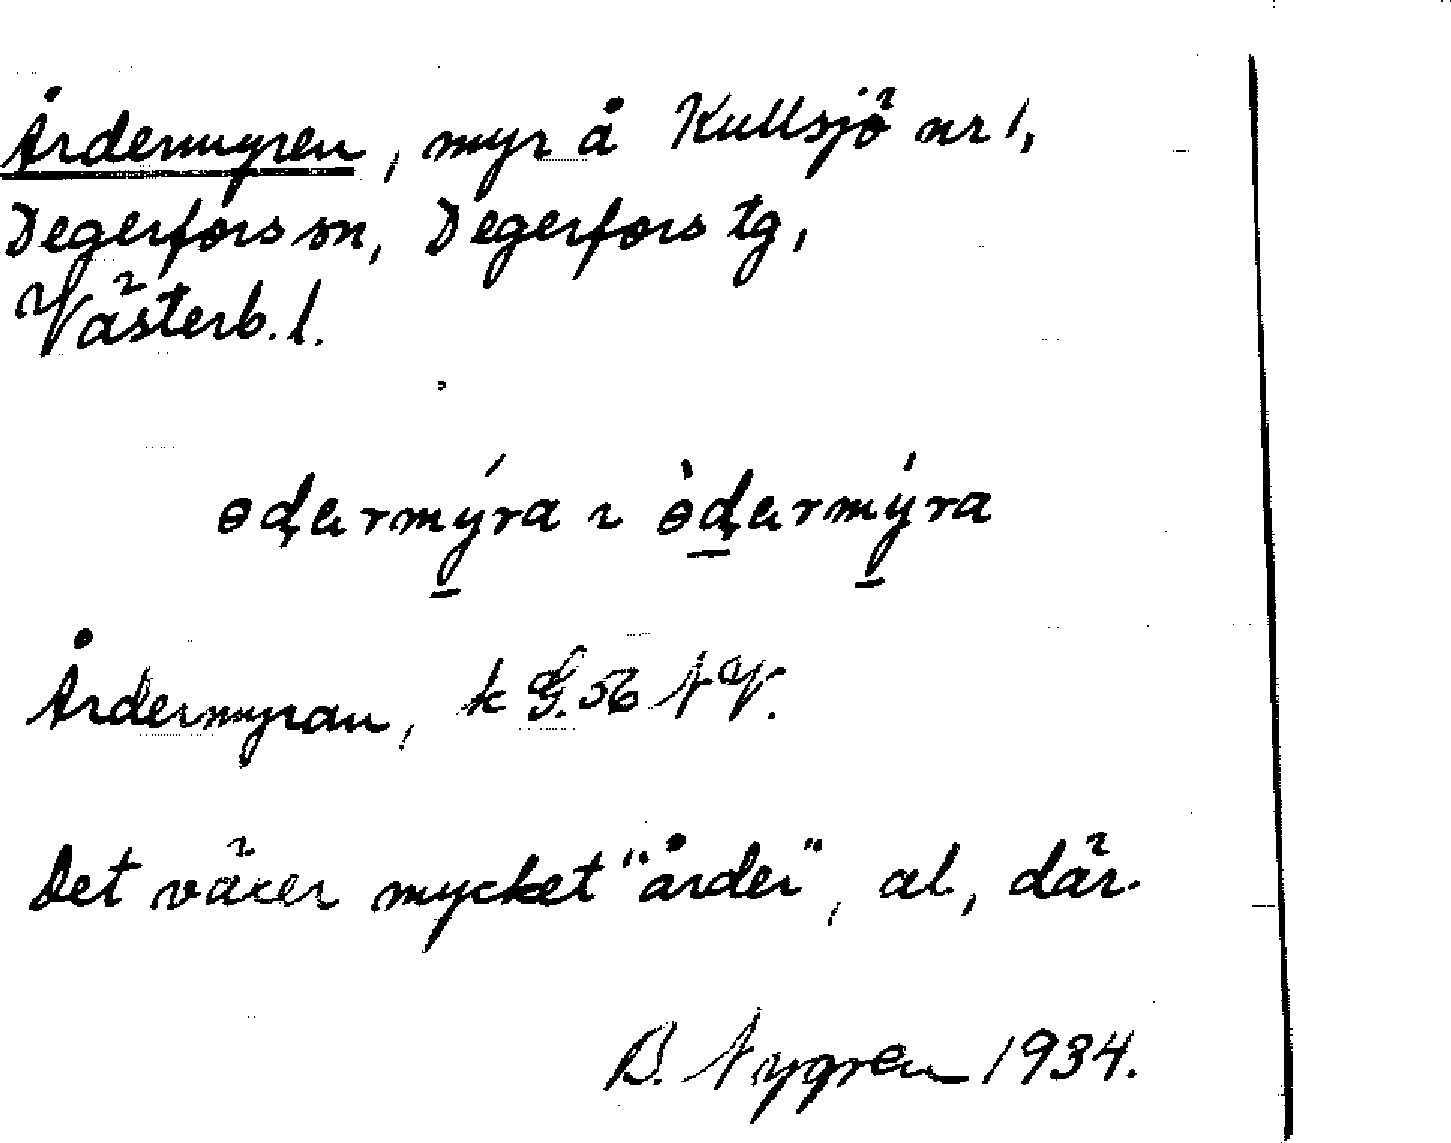 Årdermyren, myr å Kullsjö nr 1,
Degerfors sn, Degerfors tg,
Västerb. l.
ɵḍarmýra ~ ɵ̀ḍarmýra
Årdermyran, k G. 56 NV.
Det växer mycket "årder", al, där.
B. Nygren 1934.